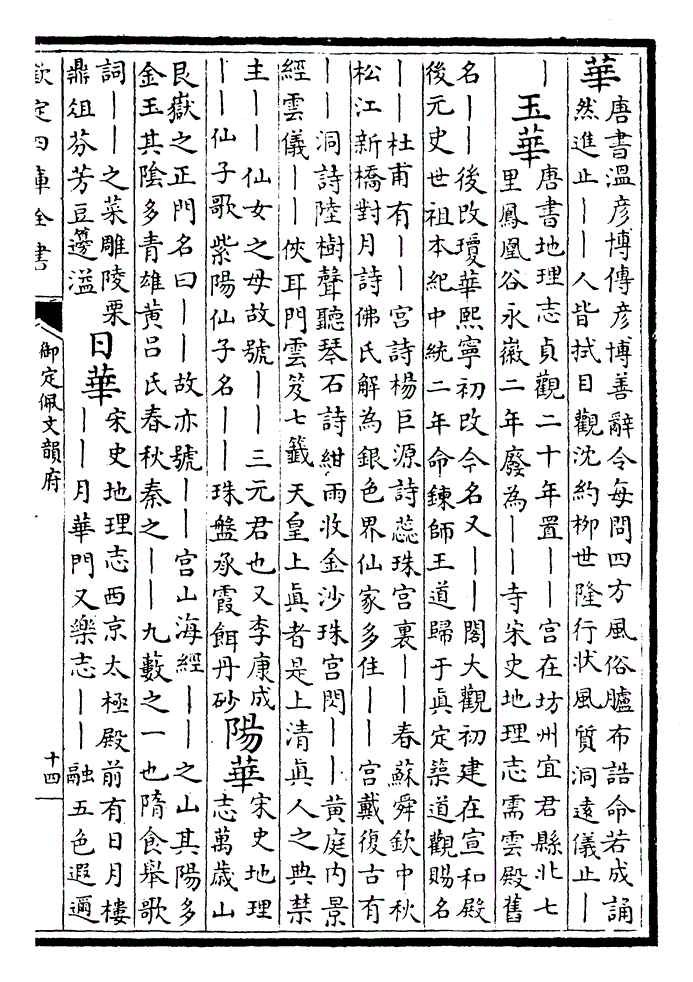 華
唐書溫彥博傳彥博善辭令每問四方風俗臚布誥命若成誦
然進止——人皆拭目觀沈約柳世隆行狀風質洞遠儀止—
—
玉華
唐書地理志貞觀二十年置——宮在坊州宜君縣北七
里鳳凰谷永徽二年廢為——寺宋史地理志需雲殿舊
名——後改瓊華熙寧初改今名又——閣大觀初建在宣和殿
後元史世祖本紀中統二年命鍊師王道歸于眞定築道觀賜名
——杜甫有——宮詩楊巨源詩蕊珠宮裏——春蘇舜欽中秋
松江新橋對月詩佛氏解為銀色界仙家多住——宮戴復古有
——洞詩陸樹聲聽琴石詩紺雨收金沙珠宮閃——黃庭內景
經雲儀——俠耳門雲笈七籤天皇上眞者是上清眞人之典禁
主——仙女之母故號——三元君也又李康成
——仙子歌紫陽仙子名——珠盤承霞餌丹砂
陽華
宋史地理
志萬歲山
艮嶽之正門名曰——故亦號——宮山海經——之山其陽多
金玉其陰多青雄黃呂氏春秋秦之——九藪之一也隋食舉歌
詞——之菜雕陵栗
鼎俎芬芳豆籩溢
日華
宋史地理志西京太極殿前有日月樓
——月華門又樂志——融五色遐邇
欽定四庫全書
御定佩文韻府
十四